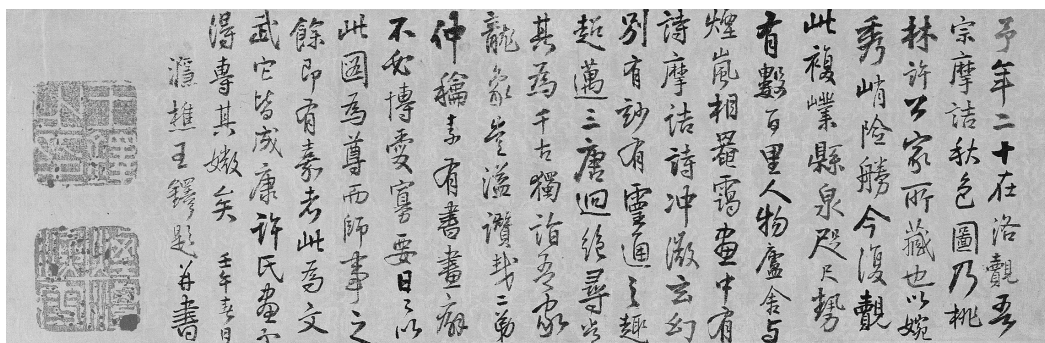 予年二十在洛觀吾
宗摩詰秋色圖乃桃
林許公家所藏也以婉
秀峭險勝今復觀
此複嶫縣泉咫尺勢
有數百里人物廬舍与
煙嵐相罨靄畫中有
詩摩詰詩冲澂玄幻
別有妙有靈通之趣
超邁三唐迥絕尋岀
其為千古獨詣吾家
龍象豈溢讚哉二弟
仲龢素有書畫癖
不必博愛寡要日以
此圖為尊而師事之
餘即有彙者此為文
武它皆成康許氏畫不
得專其媺矣 壬午春日
濱樵王鐸題并書